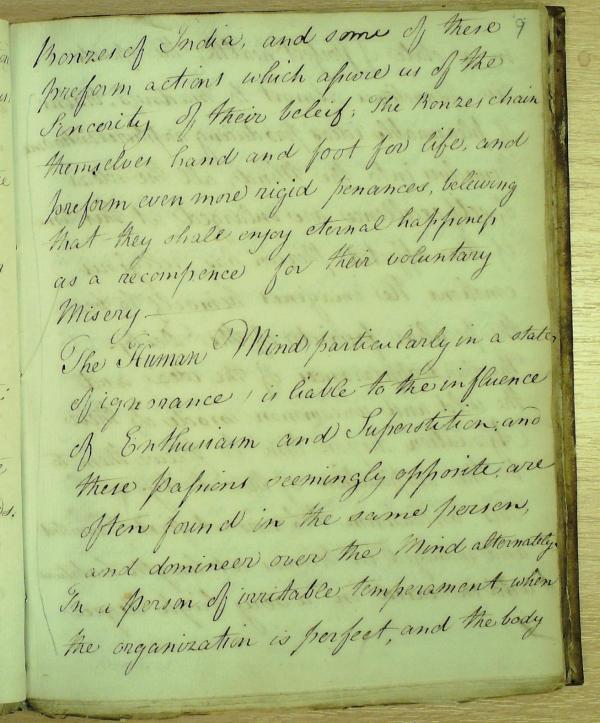 9
Bonzes of India, and some of these
preform actions which assure us of the
Sincerity of their beleif; The Bonzes chain
themselves hand and foot for life, and
preform even more rigid penances, beleiving
that they shall enjoy eternal happiness
as a recompence for their voluntary
Misery—
The Human Mind particularly in a state,
of ignorance, is liable to the influence
of Enthusiasm and Superstition, and
these passions seemingly opposite, are
often found in the same person,
and domineer over the Mind alternately.
In a person of irritable temperament, when
the organization is perfect, and the body